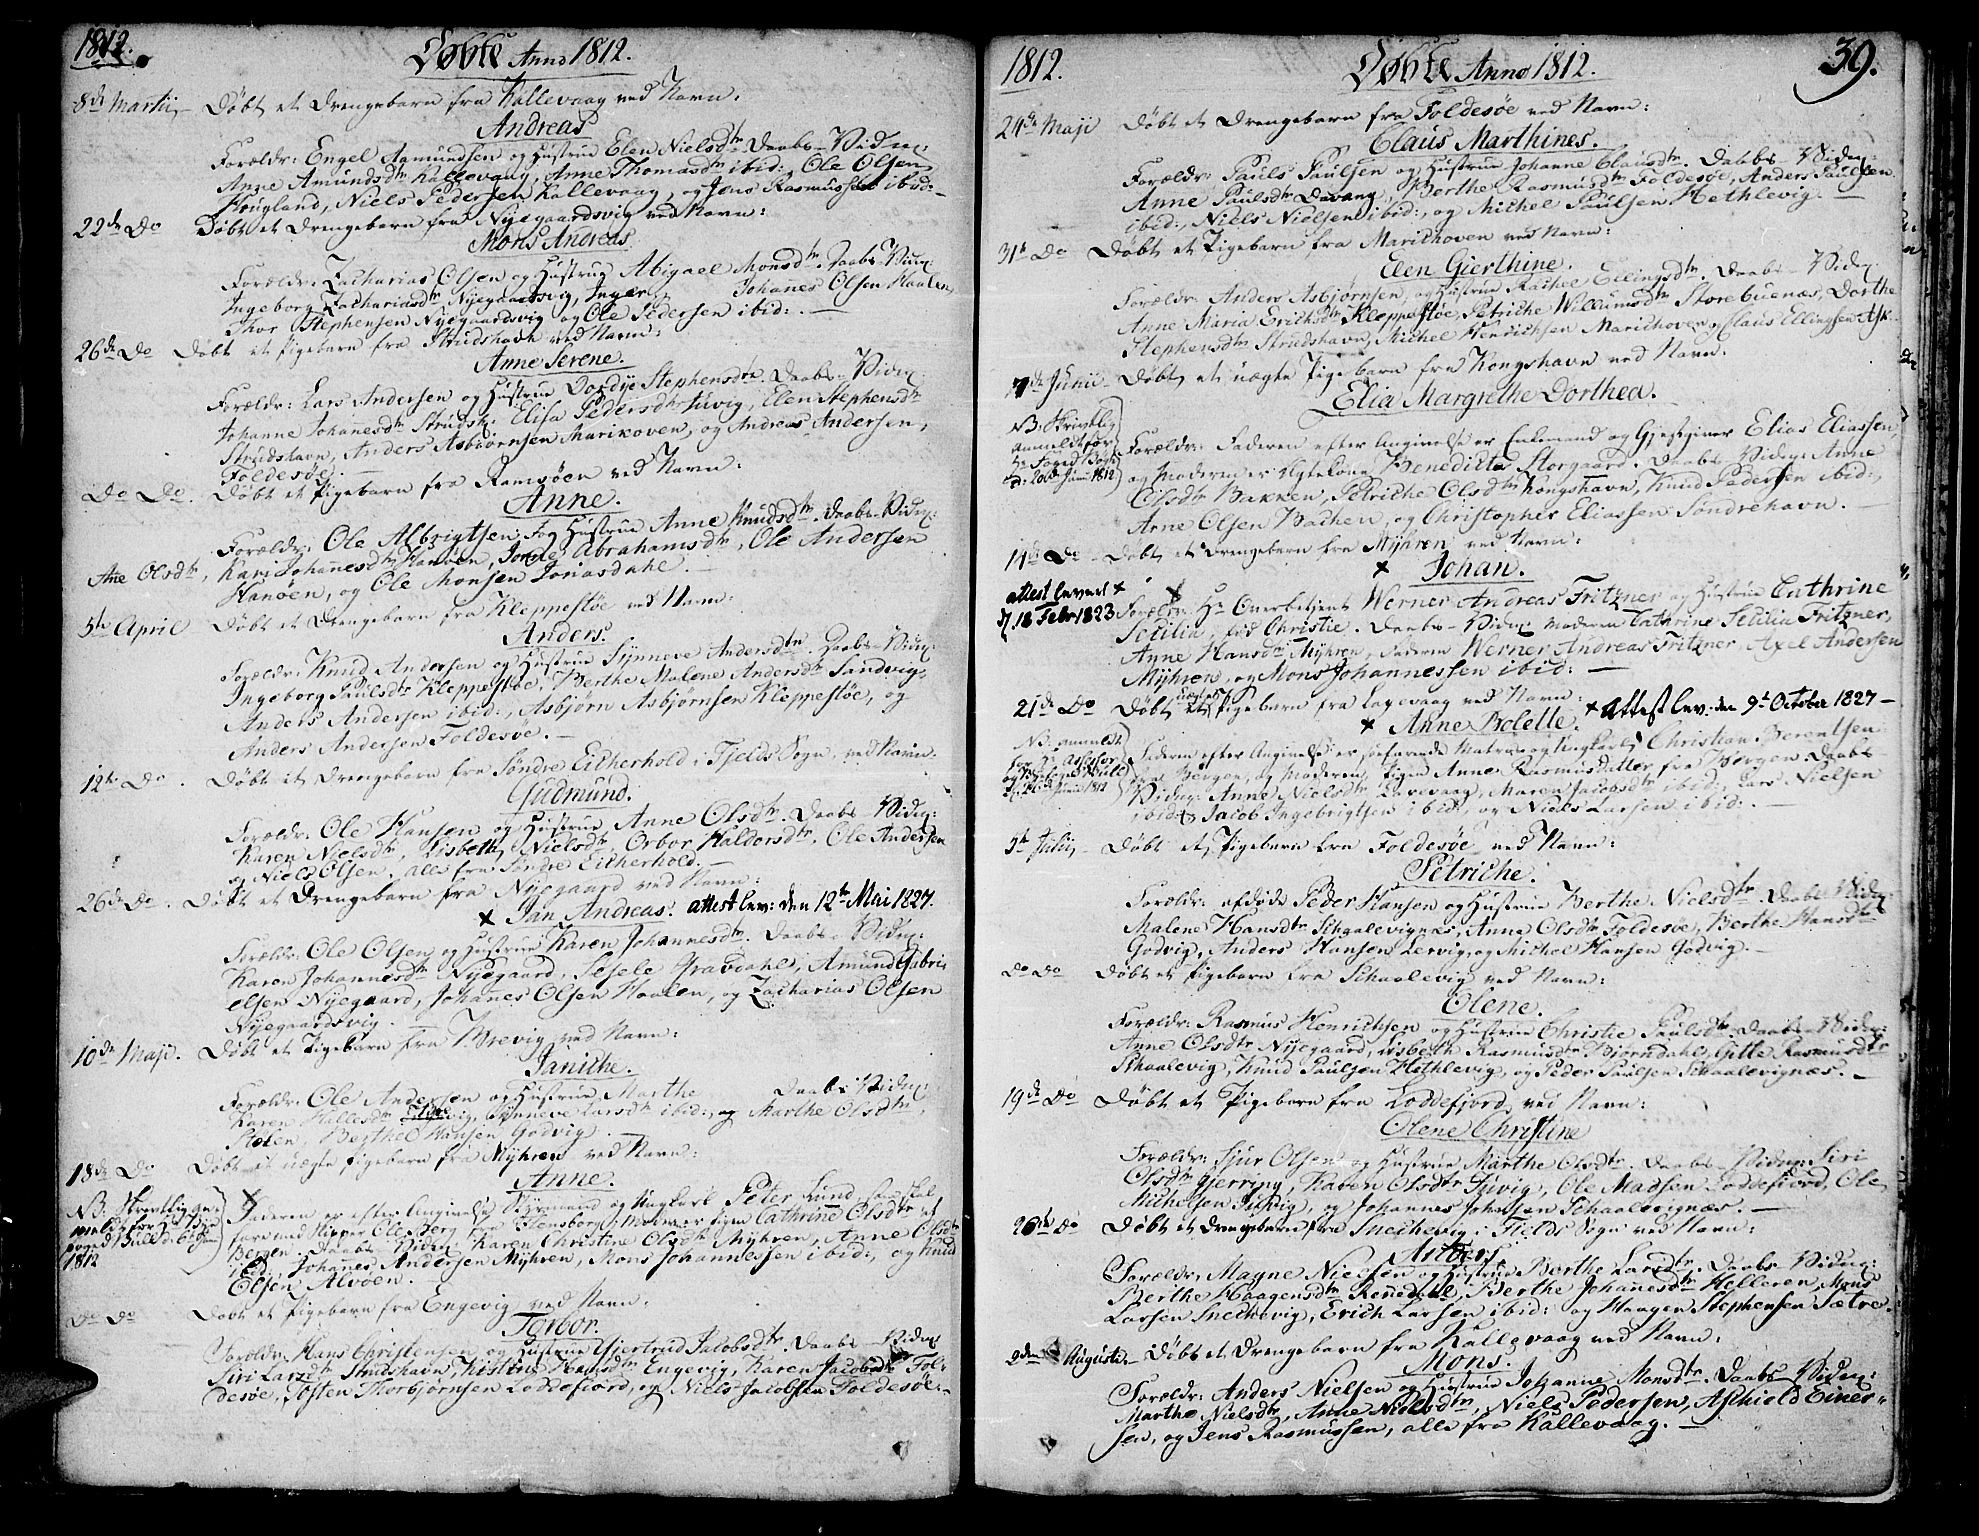 1812.
Døbte Anno 1812.
8de Martii, Døbt et Drengebarn fra Kallevaag ved Navn:
Andreas
Forældr: Engel Aamundsen og Hustrue Elen Nielsdtr. Daabs-Vidn:
Anne Amundsdtr Kallevaag, Anne Thomasdtr ibid:, Ole Olsen
Hougland, Niels Pedersen Kallevaag, og Jens Rasmussen ibid:
22de Do Døbt et Drengebarn fra Nyegaardsvig ved Navn:
Mons Andreas
Forældr: Zacharias Olsen og Hustrue Abigael Monsdtr. Daabs-Vidn:
Ingeborg Zachariasdtr Nyegaardsvig, Inger Johannes Olsen Haalen,
Thor Stephensen Nyegaardsvig og Ole Pedersen ibid:. —
26de Do Døbt et Pigebarn fra Strudshavn ved Navn:
Anne Serene.
Forældr: Lars Andersen og Hustrue Dordye Stephensdtr. Daabs-Vidn:
Johanne Johanesdtr Strudsh: Elisa Pedersdtr Juvig, Elen Stephensdtr
Strudshavn, Anders Asbiørnsen Marikoven, og Andreas Andersen,
Foldesøe. —
Do Do. Døbt et Pigebarn fra Ramsøen ved Navn:
Anne.
Forældr: Ole Albrigtsen, og Hustrue Anne Knudsdtr. Daabs-Vidn:
Ane Olsdtr, Kari Johannesdtr Hanøen, Abrahamsdtr, Ole Andersen
Hanøen, og Ole Monsen Joriasdahl. —
5te April Døbt et Drengebarn fra Kleppestøe ved Navn:
Anders.
Forældr: Knud Andersen og Hustrue Synneve Andersdtr. Daabs-Vidn:
Ingeborg Paulsdtr Kleppestøe, Berthe Malene Andersdtr Sandvig,
Anders Andersen ibid:, Asbjørn Asbjørnsen Kleppestøe, og
Anders Andersen Foldesøe. —
12te Do. Døbt et Drengebarn fra Søndre Eitherhold i Fjelds Sogn, ved Navn.
Gudmund.
Forældr: Ole Hansen og Hustrue Anne Olsdtr. Daabs-Vidn:
Karen Nielsdtr, Lisbeth Nielsdtr, Orbor Haldorsdtr, Ole Andersen
og Niels Olsen, alle fra Søndre Eitherhold. —
26de Do. Døbt et Drengebarn fra Nyegaard ved Navn:
× Jan Andreas. attest lev: den 12te Mai 1827.
Forældr: Ole Olsen og Hustrue Karen Johannesdtr. Daabs-Vidn:
Karen Johannesdtr Nyegaard, Sesele Gravdahl, Amund Gabri
elsen Nyegaard, Johanes Olsen Haalen, og Zacharias Olsen
Nyegaardsvig. —
10de Maji. Døbt et Pigebarn fra Brevig ved Navn:
Janiche.
Forældr: Ole Andersen og Hustrue Marthe Daabs-Vidn:
Karen Kallesdtr, Synneve Larsdtr ibid:, og Marthe Olsdtr,
Stølen, Berthel Hansen Godvig. —
18de Do Døbt et uægte Pigebarn fra Myhren ved Navn:
Anne.
NB: Skriftlig an-
meldt for
Foged Bull d: 6te Juni
1812
Faderen er efter Angivelse Styrmand og Ungkarl Peter Lund, som skal
fare med Skipper Ole Berg fra Flensborg, Moderen er Pigen Cathrine Olsdtr af
Bergen. Daabs-Vidn: Karen Christine Olsdtr Myhren, Anne Olsdtr
ibid:, Johannes Andersen Myhren, Mons Johannessen ibid:, og Knud
Elsen Alvøen. —
Do Do Døbt et Pigebarn fra Engevig ved Navn.
Torbor.
Forældr: Hans Christensen og Hustrue Gjertrud Jacobsdtr. Daabs-Vidn:
Siri Larsdtr Strudshavn, Kistine Hansdtr Engevig, Karen Jacobsdtr Fol-
desøe, Tosten Thorbjørnsen Loddefiord, og Niels Jacobsen Foldesøe. —
1812.
Døbte Anno 1812.
39.
24de Maji Døbt et Drengebarn fra Foldesøe ved Navn:
Claus Marthines.
Forældr: Pauls Paulsen og Hustrue Johanne Clausdtr. Daabs-Vidn:
Anne Paulsdtr Davang, Berthe Rasmusdtr Foldesøe, Anders Paulsen
ibid:, Niels Nielsen ibid:, og Michel Paulsen Hethlevig. —
31te Do Døbt et Pigebarn fra Marichoven ved Navn:
Elen Gierthine.
Forældr: Anders Asbjørnsen, og Hustrue Rachel Ellingsdtr. Daabs-Vidn:
Anne Maria Erichsdtr Kleppestøe, Petriche Willumsdtr Storebuenæs, Dorthe
Stephensdtr Strudshavn, Michel Henrichsen Marichoven, og Claus Ellingsen Ask.
7de Junii Døbt et uægte Pigebarn fra Kongshavn ved Navn:
Elia Margrethe Dorthea.
NB: Skriftlig
anmeldt for
Foged Bull
d: 20de Juni 1812
Forældr: Faderen efter Angivelse er Enkemand og Gjestgiver Elias Eliassen,
og Moderen er Ægtekone Benedicta Storgaard. Daabs-Vidn: Anne
Olsdtr Bakken, Petriche Olsdtr Kongshavn, Knud Pedersen ibid:,
Arne Olsen Bachen, og Christopher Eliassen Søndrehavn. —
14de Do Døbt et Drengebarn fra Myhren ved Navn:
× Johan.
attest leveret ×
d. 18 Febr 1823
Forældr: Hr Overbetjent Werner Andreas Fritzner og Hustrue Cathrine
Setilia, fød Christie. Daabs-Vidn: Moderen Cathrine Setilia Fritzner,
Anne Hansdtr Myhren, Faderen Werner Andreas Fritzner, Axel Andersen
Myhren, og Mons Johannessen ibid: —
21de Do Døbt et uægte Pigebarn fra Lagevaag ved Navn:
× Anne Bolette. × Attest lev: den 9de October 1827 —
NB. anmeldt
for Hr Assessor
og Foged Bull
Junii 1812
Faderen efter Angivelse er søefarende Matros og Ungkarl Christian Berentsen
fra Bergen, og Moderen Pigen Anne Rasmusdatter fra Bergen. Daabs-
Vidn: Anne Nielsdtr Lavevaag, Maren Jacobsdtr ibid:, Lars Nielsen
ibid:, Jacob Ingebrigtsen ibid:, og Niels Larsen ibid:. —
5te Julii, Døbt et Pigebarn fra Foldesøe ved Navn:
Petriche.
Forældr: afdøde Peder Hansen og Hustrue Berthe Nielsdtr. Daabs-Vidn:
Malene Hansdtr Schaalevignæs, Anne Olsdtr Foldesøe, Berthe Hansdtr
Godvig, Anders Hansen Lervig, og Michel Hansen Godvig. —
Do Do Døbt et Pigebarn fra Schaalevig ved Navn:
Olene.
Forældr: Rasmus Henrichsen og Hustrue Christie Paulsdtr. Daabs-Vidn:
Anne Olsdtr Nyegaard, Lisbeth Rasmusdtr Bjørndahl, Gitte Rasmusdtr
Skaalevig, Knud Paulsen Hethlevig, og Peder Paulsen Schaalevignæs. —
19de Do Døbt et Pigebarn fra Loddefjord ved Navn:
Olene Christine
Forældr: Sjur Olsen og Hustrue Marthe Olsdtr. Daabs-Vidn: Siri
Olsdtr Gjerring, Karen Olsdtr Juvig, Ole Madsen Loddefiord, Ole
Michelsen Juvig, og Johannes Johansen Schaalevignæs. —
26de Do Døbt et Drengebarn fra Snechevig i Fields Sogn ved Navn:
Forældr: Magne Nielsen og Hustrue Berthe Larsdtr. Daabs-Vidn:
Berthe Haagensdtr Rennedahl, Berthe Johanesdtr Helleren, Mons
Larssen Snechevig, Erich Larsen ibid: og Haagen Stephensen Sætre.
2den Augusti. Døbt et Drengebarn fra Kallevaag ved Navn:
Mons.
Forældr: Anders Nielsen og Hustrue Johanne Monsdtr. Daabs-Vidn:
Marthe Nielsdtr, Anne Nielsdtr, Niels Pedersen, Aschield Einer-
sen, og Jens Rasmussen, alle fra Kallevaag. —